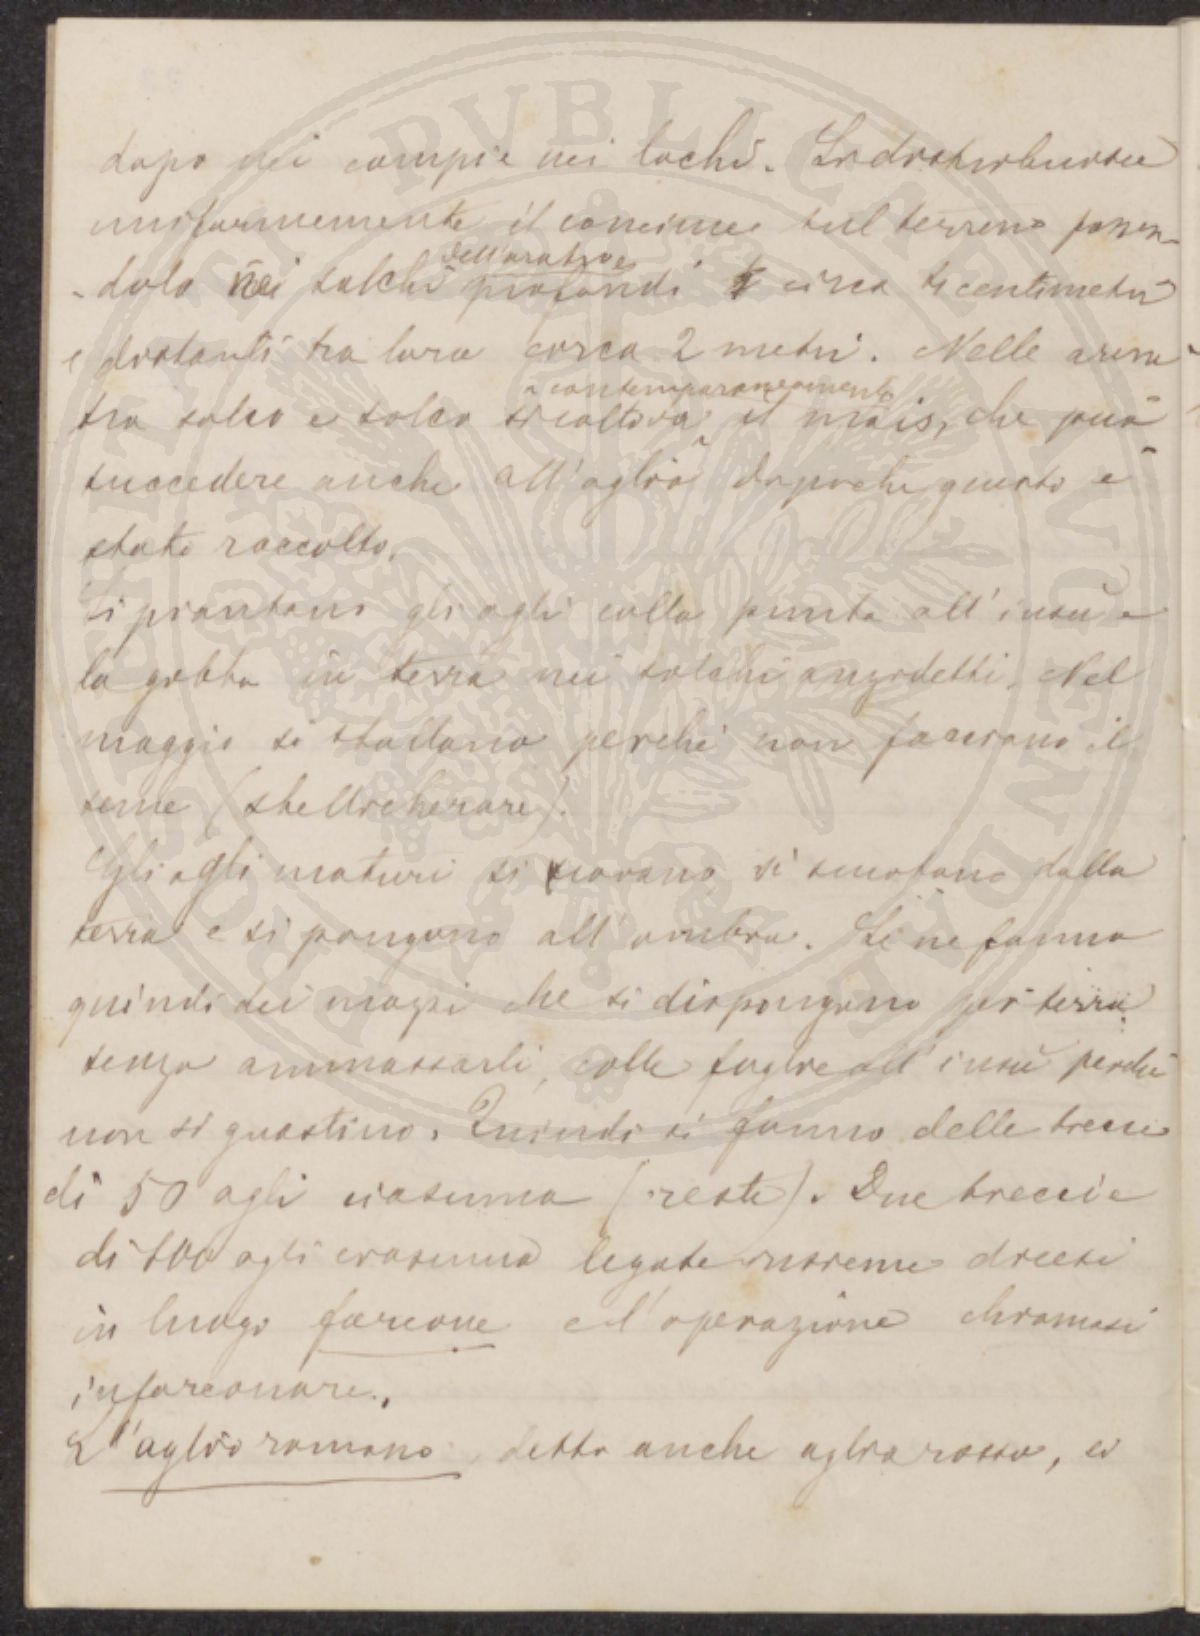 dopo nei campi e nei lochi. Si distribuisce
uniformemente il concime sul terreno ponen-
-dolo nei solchi dell'aratro profondi circa centimetri
e distanti tra loro circa 2 metri. Nelle arene
tra solco e solco si coltiva contemporaneamente il mais, che può
succedere anche all'aglio dopochè questo è
stato raccolto.
Si piantano gli agli colla punta all'insù e
la gobba in terra nei solchi anzidetti. Nel
maggio si stallano perchè non facciano il
seme (stellicherare).
Gli agli maturi si scavano, si scuotono dalla
terra e si pongono all'ombra. Se ne fanno
quindi dei mazzi che si dispongono per terra
senza ammassarli, colle foglie all'insù perchè
non si guastino. Quindi si fanno delle treccie
di 50 agli ciascuna (reste). Due treccie
di 100 agli ciascuna legate insieme dicesi
in luogo farcione e l'operazione chiamasi
infarcionare.
L'aglio romano, detto anche aglio rosso, è